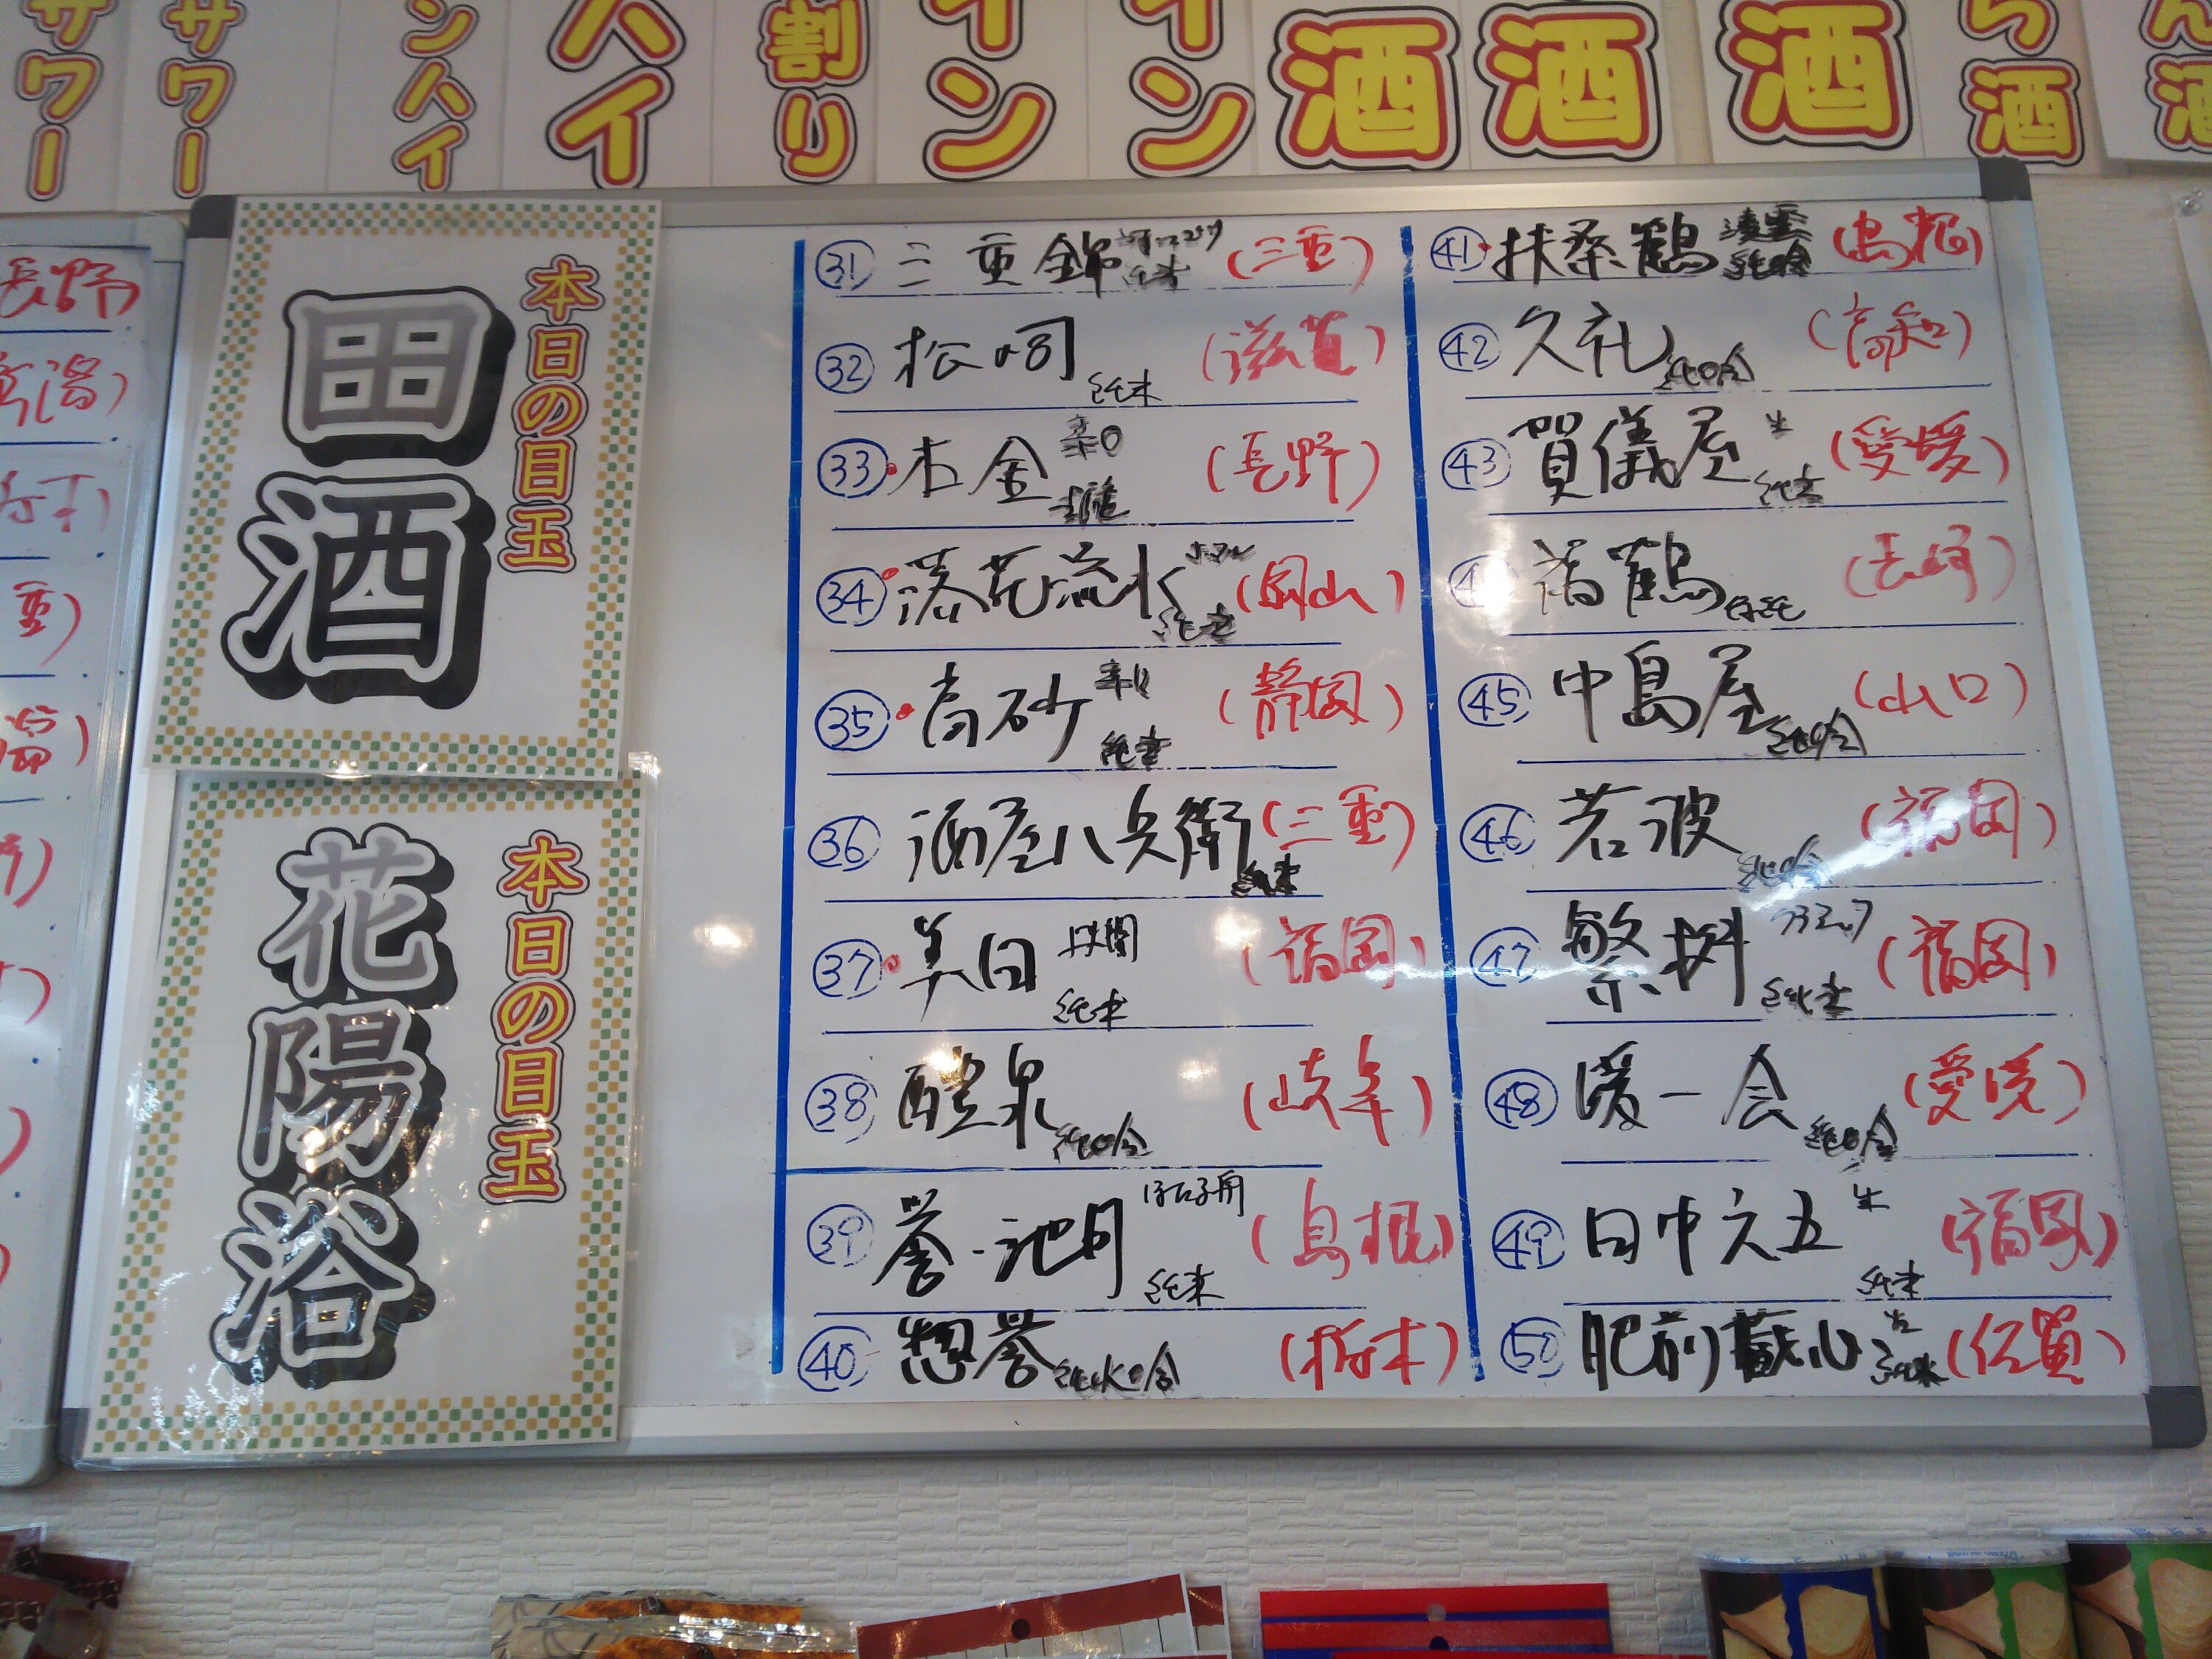 サワー
サワー
ンハイ
ハイ
割り
イン
イン
酒
酒
酒
ら酒
ん酒
長野
重)
本日の目玉
田酒
本日の目玉
花陽浴
㉛ 三重錦 純米 (三重)
㉜ 松の司 純米 (滋賀)
㉝ 木金 辛口 (長野)
㉞ 落花流水 純米 (岡山)
㉟ 高砂 辛口 純米 (静岡)
㊱ 酒屋八兵衛 純米 (三重)
㊲ 美田 純米 (福岡)
㊳ 醴泉 純吟 (岐阜)
㊴ 誉池月 純米 (島根)
㊵ 惣誉 (栃木)
㊶ 扶桑鶴 純吟 (島根)
㊷ 久礼 純吟 (高知)
㊸ 賀儀屋 生 純米 (愛媛)
福鶴 (長崎)
㊺ 中島屋 純吟 (山口)
㊻ 若波 純吟 (福岡)
㊼ 繁桝 純米 (福岡)
㊽ 媛一会 純吟 (愛媛)
㊾ 田中六五 生 純米 (福岡)
㊿ 肥前蔵心 生 純米 (佐賀)